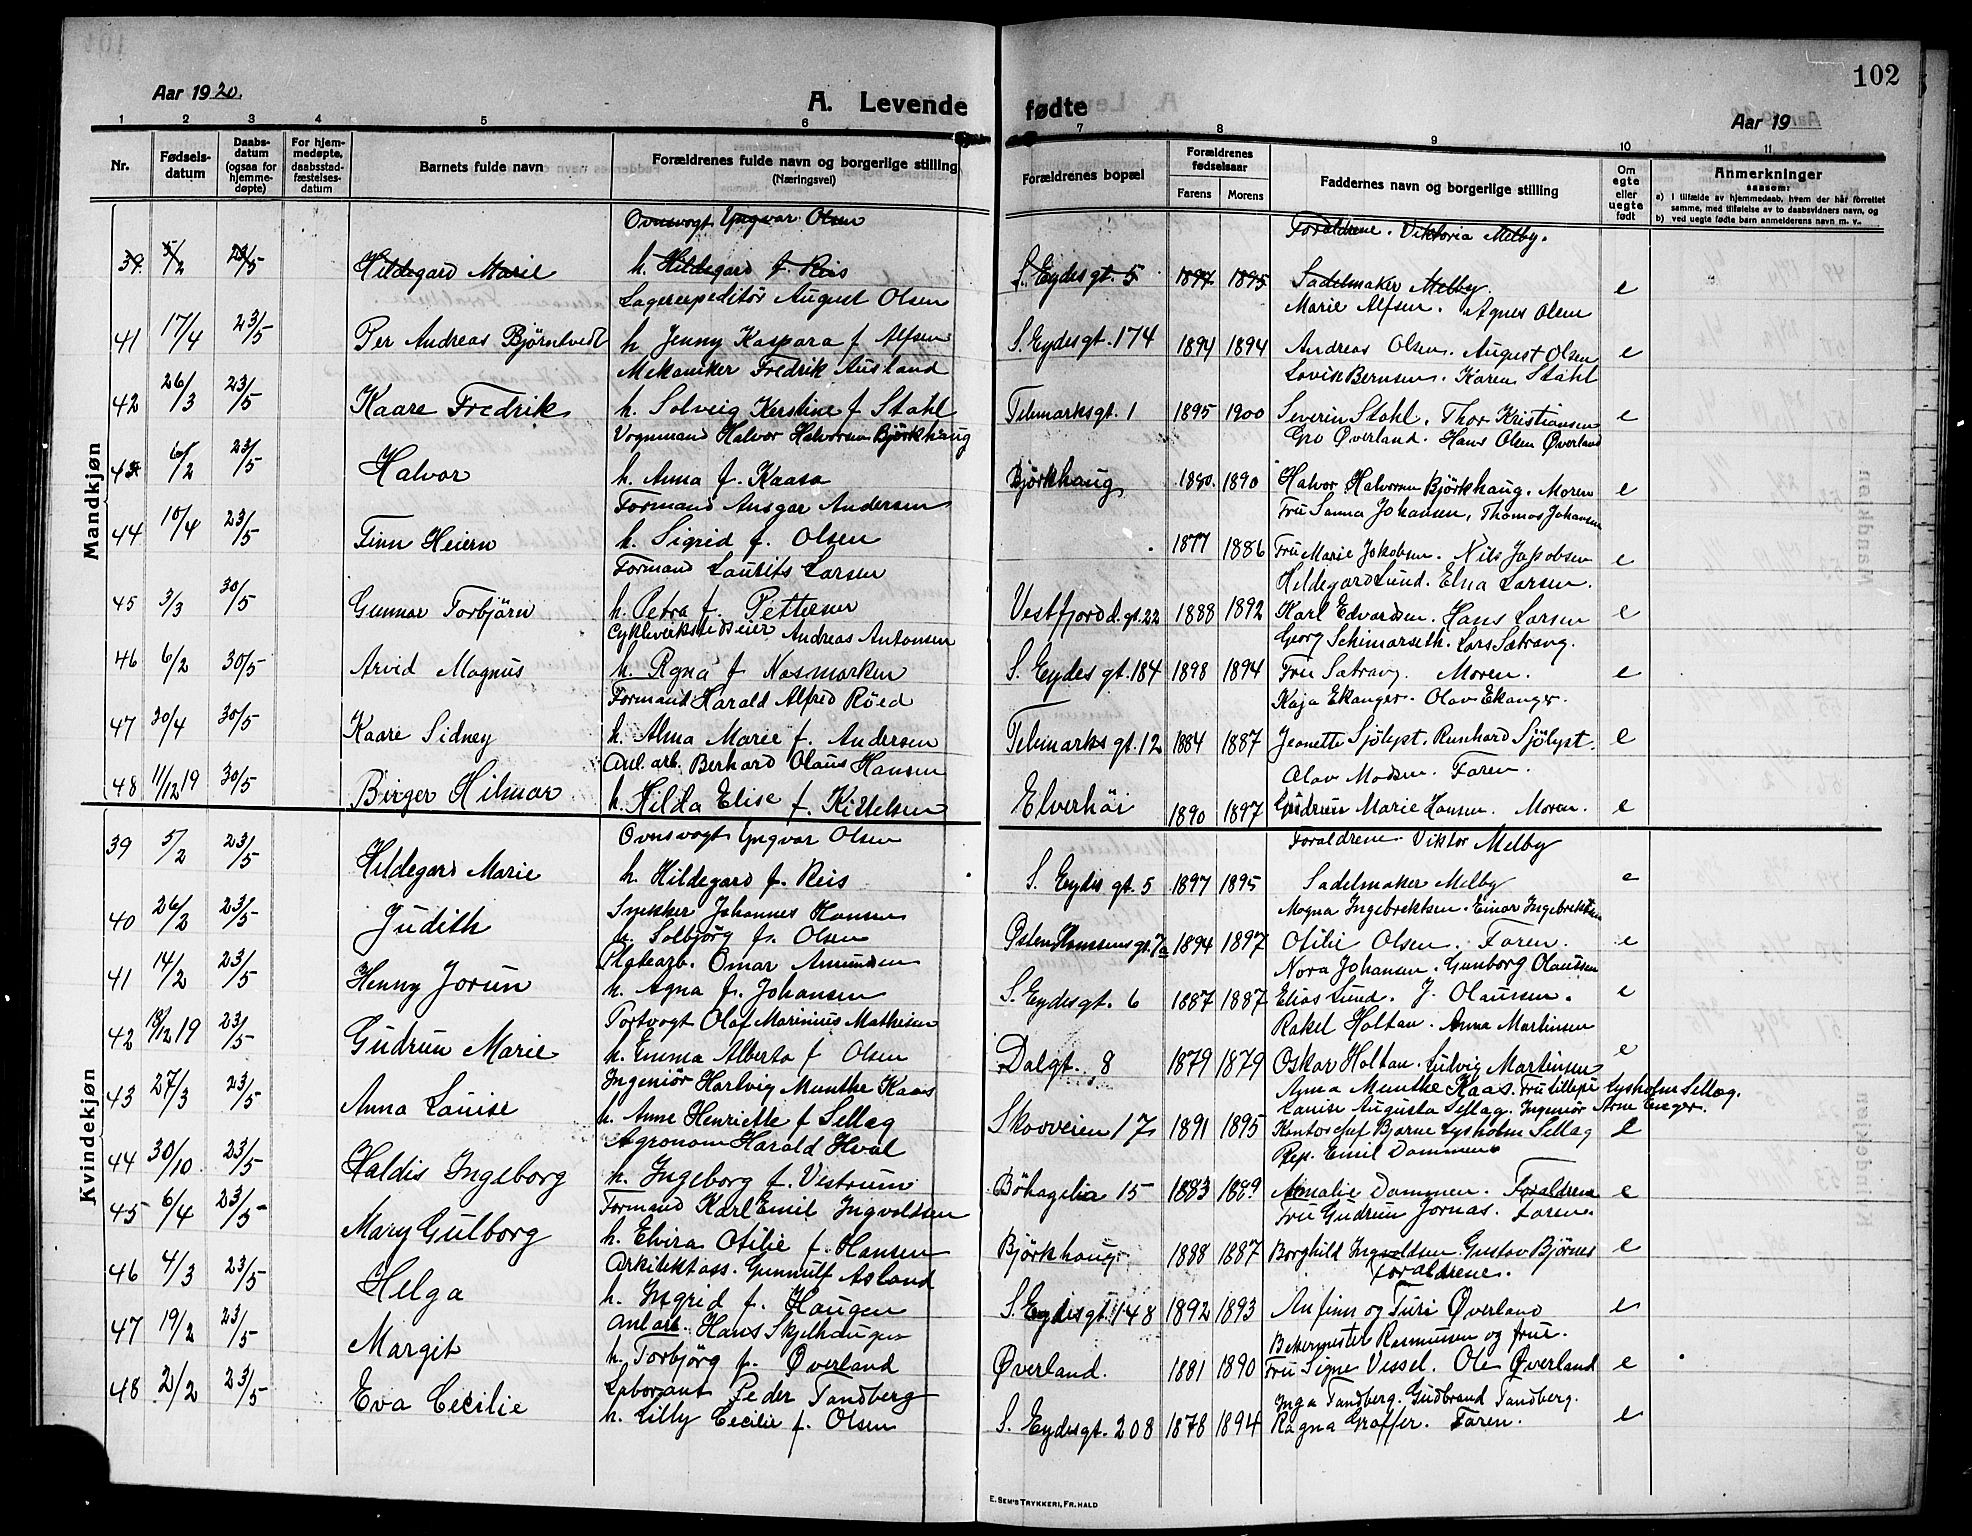 102
Aar 1920
A. Levende fødte
Aar 19
1 2 3 4 5 6 7 8 9 10 11
Nr.
Fødsels-datum
Daabs-datum (ogsaa for hjemme-døpte)
For hjem-medøpte, daabsstad-fæstelses-datum
Barnets fulde navn
Forældrenes fulde navn og borgerlige stilling (Næringsvei)
Forældrenes bopæl
Forældrenes fødselsaar
Farens Morens
Faddernes navn og borgerlige stilling
Om egte eller uegte født
Anmerkninger
saasom:
a) I tilfælde av hjemmedaab, hvem der har forrettet samme, med tilføielse av to daabsvidners navn, og
b) ved uegte fødte barn anmelderens navn m. v..
Mandkjøn
Ovnsvogt Yngvar Olsen Foraldrene. Viktoria Melby.
39. 5/2 23/5 Hildegard Marie h. Hildegard f. Reis S. Eydesgt. 5 1897 1895 Sadelmaker Melby e
Lagerexpeditör August Olsen Marie Alfsen. Agnes Olsen
41 17/4 23/5 Per Andreas Bjørntvedt h. Jenny Kaspara f. Alfsen S. Eydesgt. 174 1894 1894 Andreas Olsen. August Olsen e
Mekaniker Fredrik Ausland Karen Stahl
42 26/3 23/5 Kaare Fredrik h. Solveig Kerstine f. Stahl Telemarksgt. 1 1895 1900 Severin Stahl. Thor Kristiansen e
Vognmand Halvor Halvorsen Bjørkhaug Gro Øverland. Hans Olsen Øverland
43 6/2 23/5 Halvor h. Anna f. Kaasa Bjørkhaug 1880. 1890 Halvor Halvorsen Björkhaug. Moren e
Formand Ansgar Andersen Fru Sanna Johansen, Thomas Johansen
44 10/4 23/5 Finn Heiern h. Sigrid f. Olsen 1877 1886 Fru Marie Jakobsen. Nils Jakobsen e
Formand Laurits Larsen Hildegard Lund. Elna Larsen.
45 3/3 30/5 Gunnar Torbjörn h. Petra f. Pettersen Vestfjordd. gt. 22 1888 1892 Karl Edvardsen. Hans Larsen e
Cykleverkstedseier Andreas Antonsen Georg Lars Satrang.
46 6/2 30/5 Arvid Magnus h. Agna f. Nasmarken S. Eydes gt. 184 1898 1894 Fru Satrang. Moren. e
Formand Harald Alfred Röed Kaja Ekanger. Olav Ekanger.
47 30/4 30/5 Kaare Sidney h. Alma Marie f. Andersen Telemarks gt. 12 1884 1887 Jeanette Sjölyst. Runhard Sjölyst. e
Anl. arb. Berhard Olaus Hansen Olav Madsen. Faren.
48 11/12 19 30/5 Birger Hilmar h. Hilda Elise f. Kittelsen Elverhöi 1890 1897 Gudrun Marie Hansen. Moren. e
Kvindekjøn
Ovnsvogt Yngvar Olsen Foraldrene. Viktor Melby
39 5/2 23/5 Hildegard Marie h. Hildegard f. Reis S. Eydes gt. 5 1897 1895 Sadelmaker Melby e
Snekker Johannes Hansen Magna Ingebrektsen. Einar Ingebrektsen
40 26/2 23/5 Judith h. Solbjörg f. Olsen Østen Hanssens gt. 7a 1894 1897 Otilie Olsen. Faren. e
Platearb. Omar Amundsen Nora Johansen. Gunborg Olaussen
41 14/2 23/5 Henny Jorun h. Agna f. Johansen S. Eydesgt. 6 1887 1887 Elias Lund. J. Olaussen. e
Portvogt Olaf Marinius Mathisen Rakel Holtan. Anna Martinsen
42 18/12 19 23/5 Gudrun Marie h. Emma Alberta f. Olsen Dalgt. 8 1879 1879 Oskar Holtan. Ludvig Martinsen e
Ingeniör Hartvig Munthe Kaas Anna Munthe Kaas. Fru Lysholm Sellæg.
Louise Augusta Sellæg. Ingeniör Arne Enger.
43 27/3 23/5 Anna Louise h. Anne Henriette f. Sellæg Skovveien 17 1891 1895 Kontorchef Bjarne Lysholm Sellæg e
Agronom Harald Hval Rep. Emil Dammen
44 30/10. 23/5 Haldis Ingeborg h. Ingeborg f. Vestrum Böhagelia 15 1883 1889 Amalie Dammen. Foraldrene e
Formand Karl Emil Ingvoldsen Fru Gudrun Jornas. Faren.
45 6/4 23/5 Mary Gulborg h. Elvira Otilie f. Hansen Bjørkhaug 1888 1887 Borghild Ingvoldsen. Gustav Bjørnes e
Arkitektass. Gunnulf Asland Foraldrene.
46 4/3 23/5 Helga h. Ingrid f. Haugen S. Eydesgt. 148 1892 1893 Anfinn og Turi Øverland e
Anl arb. Hans Skjelhaugen Betjermester Rasmussen og frue.
47 19/2 23/5 Margit h. Torbjörg f. Øverland Øverland. 1881 1890 Fru Signe Vessel. Ole Øverland e
Laborant Peder Tandberg Inga Tandberg. Gudbrand Tandberg.
48 2/2 23/5 Eva Cecilie h. Lilly Cecilie f. Olsen S. Eydesgt. 208 1878 1894 Ragna Graffer. Faren. e
E. SEM'S TRYKKERI, FR. HALD